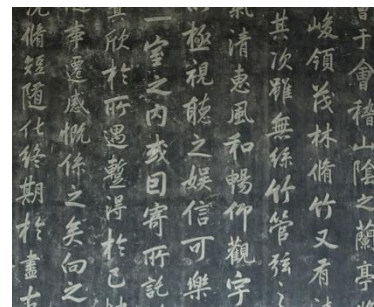 會于會稽山陰之蘭亭
峻領茂林脩竹又有
其次雖無絲竹管弦之
氣清惠風和暢仰觀宇
極視聽之娛信可樂
一室之內或因寄所託
其欣於所遇蹔得於己
事遷感慨係之矣向之
況脩短隨化終期於盡古